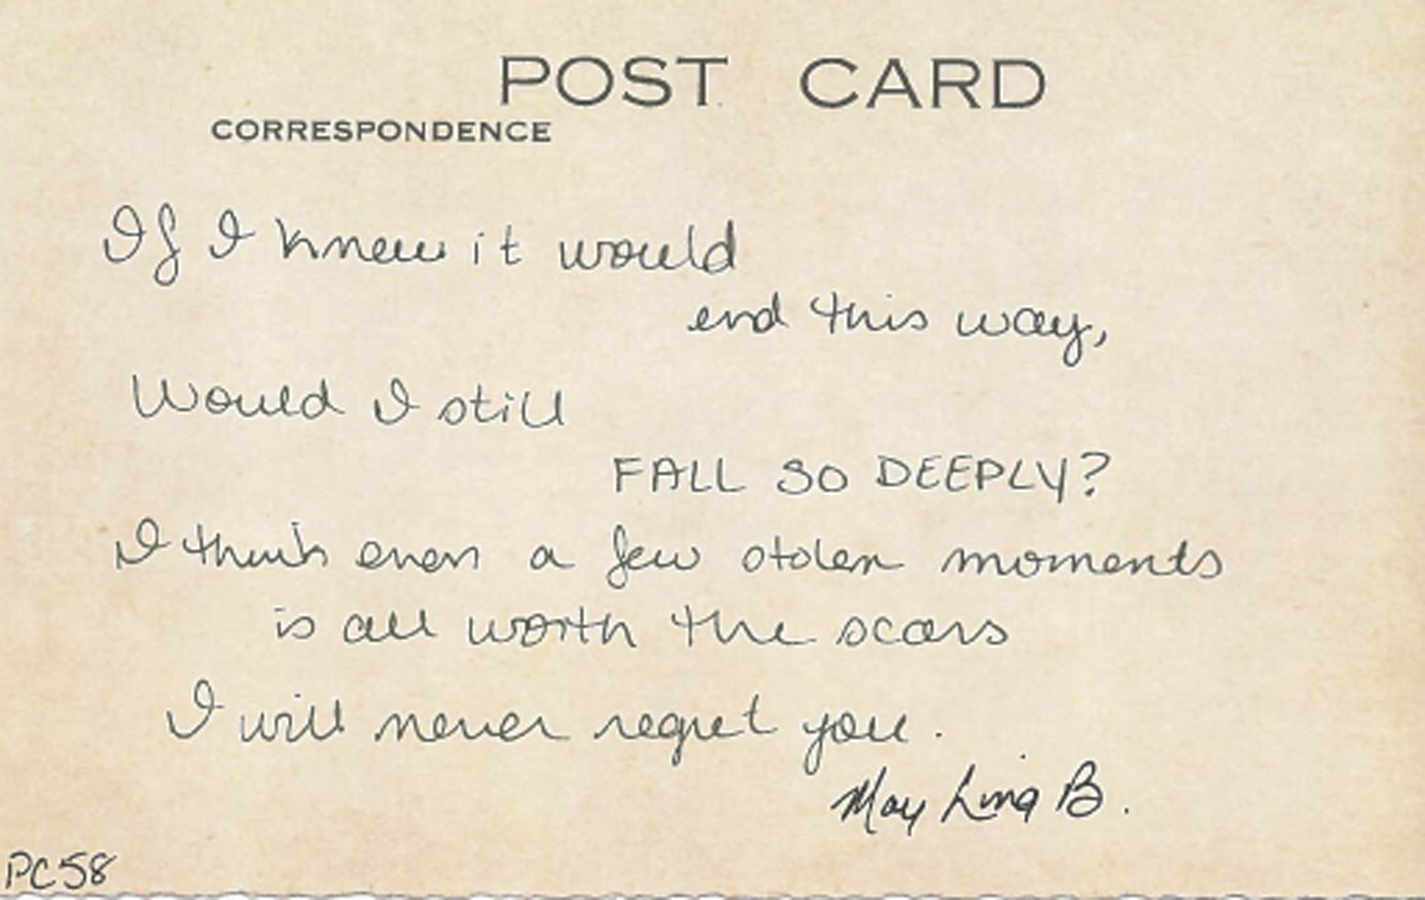 POST CARD
CORRESPONDENCE
If I knew it would
end this way,
Would I still
FALL SO DEEPLY?
I think even a few stolen moments
is all worth the scars
I will never regret you.
May Ling B.
PC58